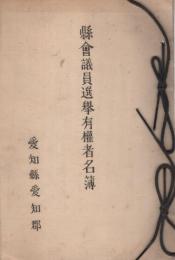 縣會議員選擧有權者名簿
愛知縣愛知郡